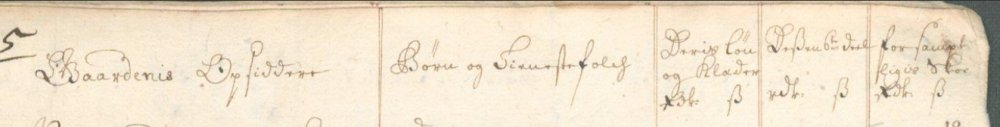 5
Gaardenis Opsiddere
Børn og Tienestefolch
Deris Løn
og Klæder
rdr ß
Deßen 6te deel
rdr ß
for sampt
ligis Skoe
rdr ß